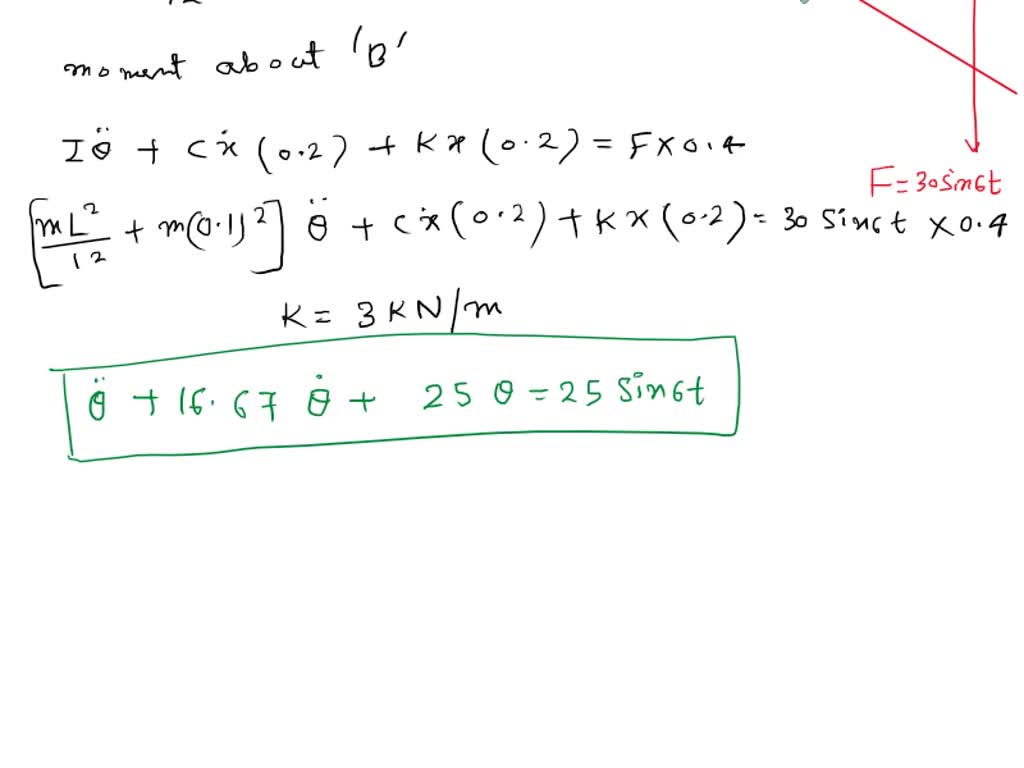 12
moment about 'B'
Iθ̈ + cẋ(0.2) + Kx(0.2) = F×0.4
F=30sin6t
[mL²/12 + m(0.1)²] θ̈ + cẋ(0.2) + Kx(0.2) = 30 sin6t ×0.4
K = 3KN/m
θ̈ + 16.67 θ̇ + 25 θ = 25 sin6t